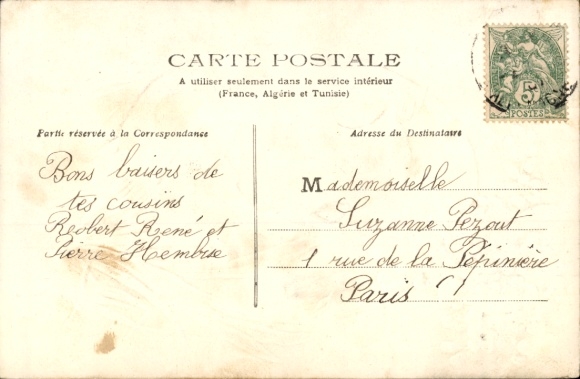 CARTE POSTALE
A utiliser seulement dans le service intérieur
(France, Algérie et Tunisie)
Partie réservée à la Correspondance
Adresse du Destinataire
Bons baisers de
tes cousins
Robert René et
Pierre
Mademoiselle
Suzanne Pezout
1 rue de la Pépinière
Paris
5
POSTES